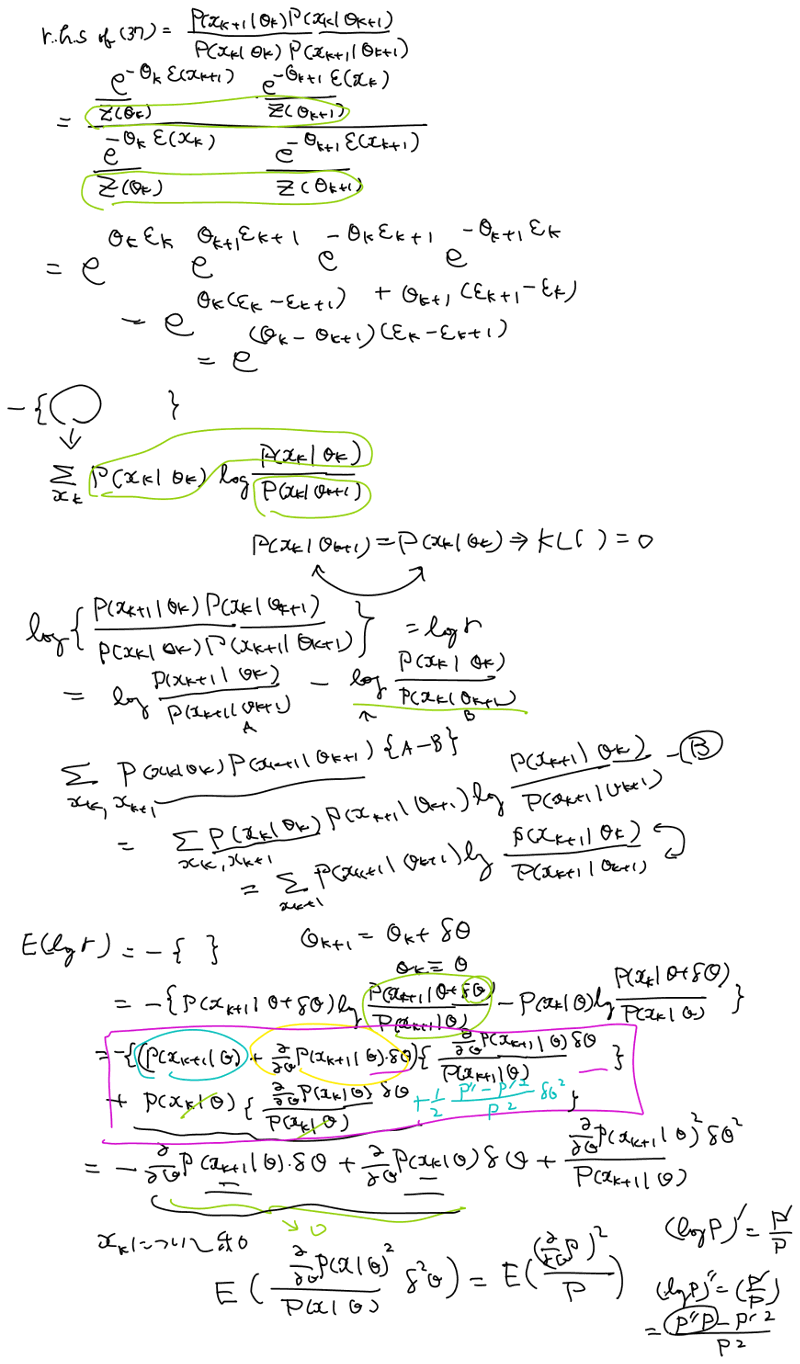 r.h.s of (37) = P(x_{k+1}|θ_k)P(x_k|θ_{k+1}) / P(x_k|θ_k) P(x_{k+1}|θ_{k+1})
= (e^{-θ_k ε(x_{k+1})} / Z(θ_k)) (e^{-θ_{k+1} ε(x_k)} / Z(θ_{k+1})) / (e^{-θ_k ε(x_k)} / Z(θ_k)) (e^{-θ_{k+1} ε(x_{k+1})} / Z(θ_{k+1}))
= e^{θ_k ε_k} e^{θ_{k+1} ε_{k+1}} e^{-θ_k ε_{k+1}} e^{-θ_{k+1} ε_k}
= e^{θ_k(ε_k - ε_{k+1}) + θ_{k+1}(ε_{k+1} - ε_k)}
= e^{(θ_k - θ_{k+1})(ε_k - ε_{k+1})}
-{ ○ }
↓
Σ_{x_k} P(x_k|θ_k) log P(x_k|θ_k) / P(x_k|θ_{k+1})
P(x_k|θ_{k+1}) = P(x_k|θ_k) ⇒ KL( ) = 0
log{ P(x_{k+1}|θ_k) P(x_k|θ_{k+1}) / P(x_k|θ_k) P(x_{k+1}|θ_{k+1}) } = log r
= log P(x_{k+1}|θ_k) / P(x_{k+1}|θ_{k+1}) - log P(x_k|θ_k) / P(x_k|θ_{k+1})
A B
Σ_{x_k, x_{k+1}} P(x_k|θ_k) P(x_{k+1}|θ_{k+1}) {A-B}
= Σ_{x_k, x_{k+1}} P(x_k|θ_k) P(x_{k+1}|θ_{k+1}) log P(x_{k+1}|θ_k) / P(x_{k+1}|θ_{k+1}) - B
= Σ_{x_{k+1}} P(x_{k+1}|θ_{k+1}) log P(x_{k+1}|θ_k) / P(x_{k+1}|θ_{k+1})
E(log r) = -{ } θ_{k+1} = θ_k + δθ
θ_k ≡ θ
= -{P(x_{k+1}|θ+δθ) log P(x_{k+1}|θ+δθ) / P(x_{k+1}|θ) - P(x_k|θ) log P(x_k|θ+δθ) / P(x_k|θ)}
= -{(P(x_{k+1}|θ) + ∂/∂θ P(x_{k+1}|θ)·δθ){ ∂/∂θ P(x_{k+1}|θ) δθ / P(x_{k+1}|θ) }
+ P(x_k|θ) { ∂/∂θ P(x_k|θ) δθ / P(x_k|θ) + 1/2 P''-P'^2 / P^2 δθ^2 }
= - ∂/∂θ P(x_{k+1}|θ)·δθ + ∂/∂θ P(x_k|θ) δθ + ∂/∂θ P(x_{k+1}|θ)^2 δθ^2 / P(x_{k+1}|θ)
→ 0
E( ∂/∂θ P(x|θ)^2 / P(x|θ) δ^2θ ) = E( (∂/∂θ P)^2 / P )
(log P)' = P'/P
(log P)'' = (P'/P)
= P''P - P'^2 / P^2